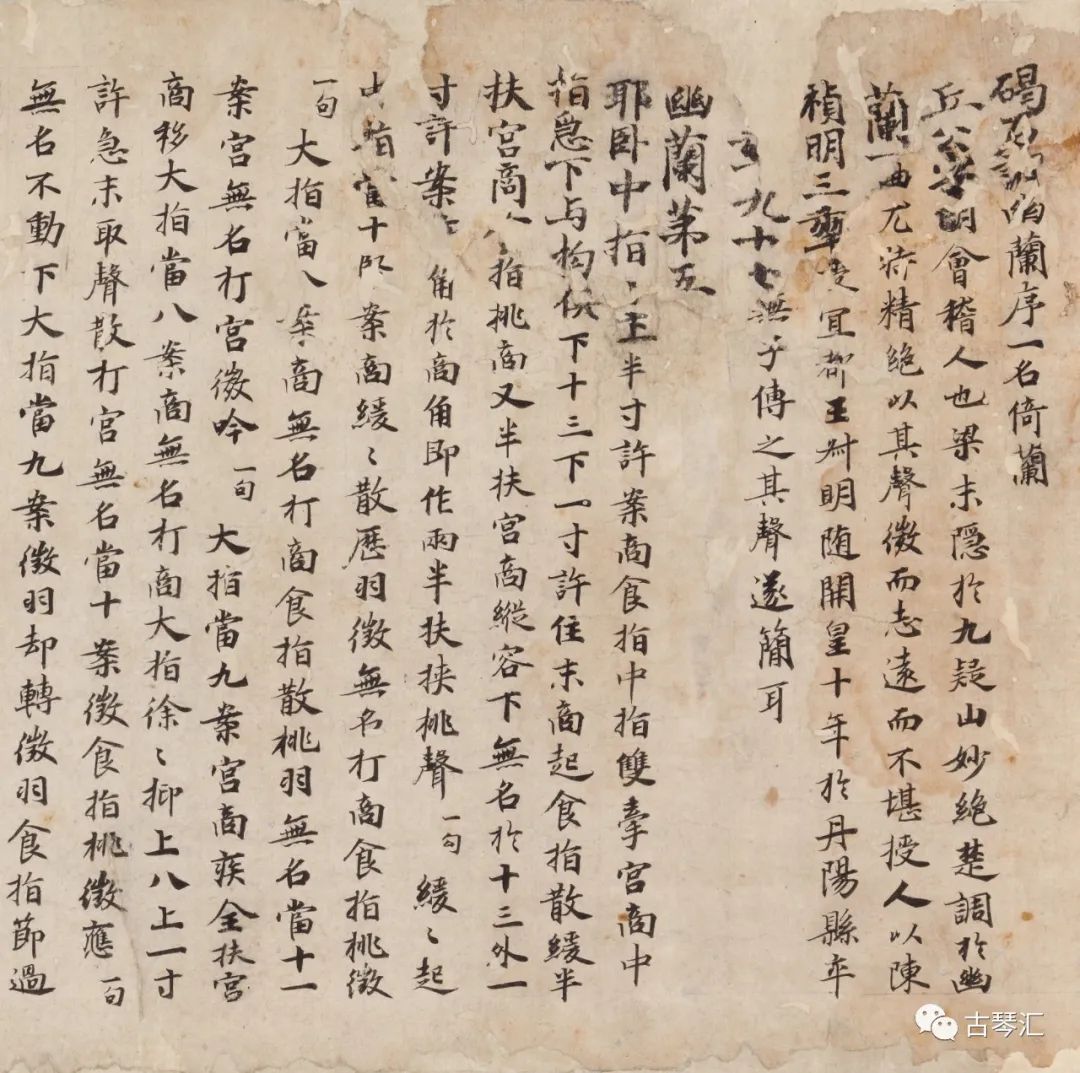 碣石調幽蘭序一名倚蘭
丘公字明會稽人也梁末隱於九疑山妙絕楚調於幽
蘭一曲尤特精絕以其聲微而志遠而不堪授人以陳
禎明三年授宜都王叔明随開皇十年於丹陽縣卒
九十七無子傳之其聲遂簡耳
幽蘭第五
耶卧中指〻半寸許案商食指中指雙牽宮商中
指急下与拘俱下十三下一寸許住末商起食指散緩半
扶宮商食指挑商又半扶宮商縱容下無名於十三外一
寸許案商角於商角即作兩半扶挾挑聲一句 緩〻起
中指當十案商緩〻散歷羽徵無名打商食指挑徵
一句 大指當八案商無名打商食指散挑羽無名當十一
案宮無名打宮徵吟一句 大指當九案宮商疾全扶宮
商移大指當八案商無名打商大指徐〻抑上八上一寸
許急末取聲散打宮無名當十案徵食指挑徵應一句
無名不動下大指當九案徵羽却轉徵羽食指節過
古琴汇